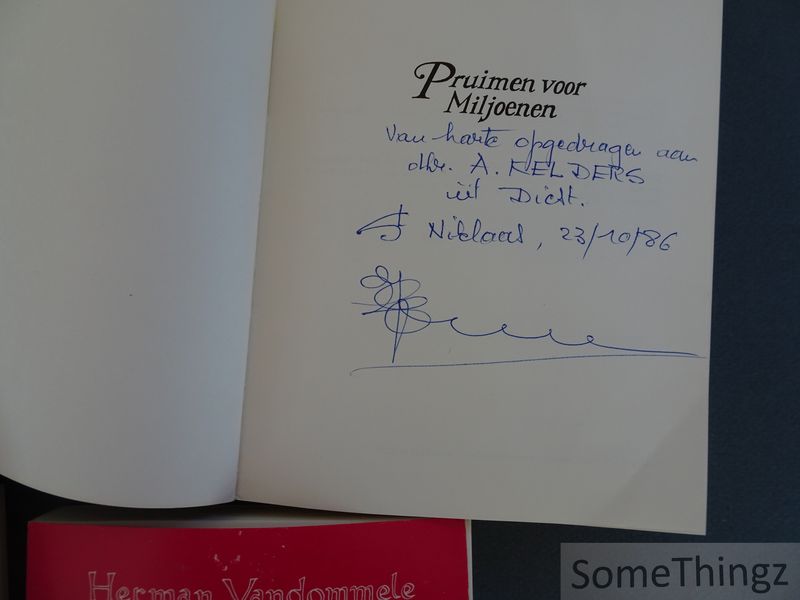 Pruimen voor
Miljoenen
Van harte opgedragen aan
dhr. A. KELDERS
uit Diest.
St Niklaas, 23/10/86
Herman Vandommele
SomeThingz